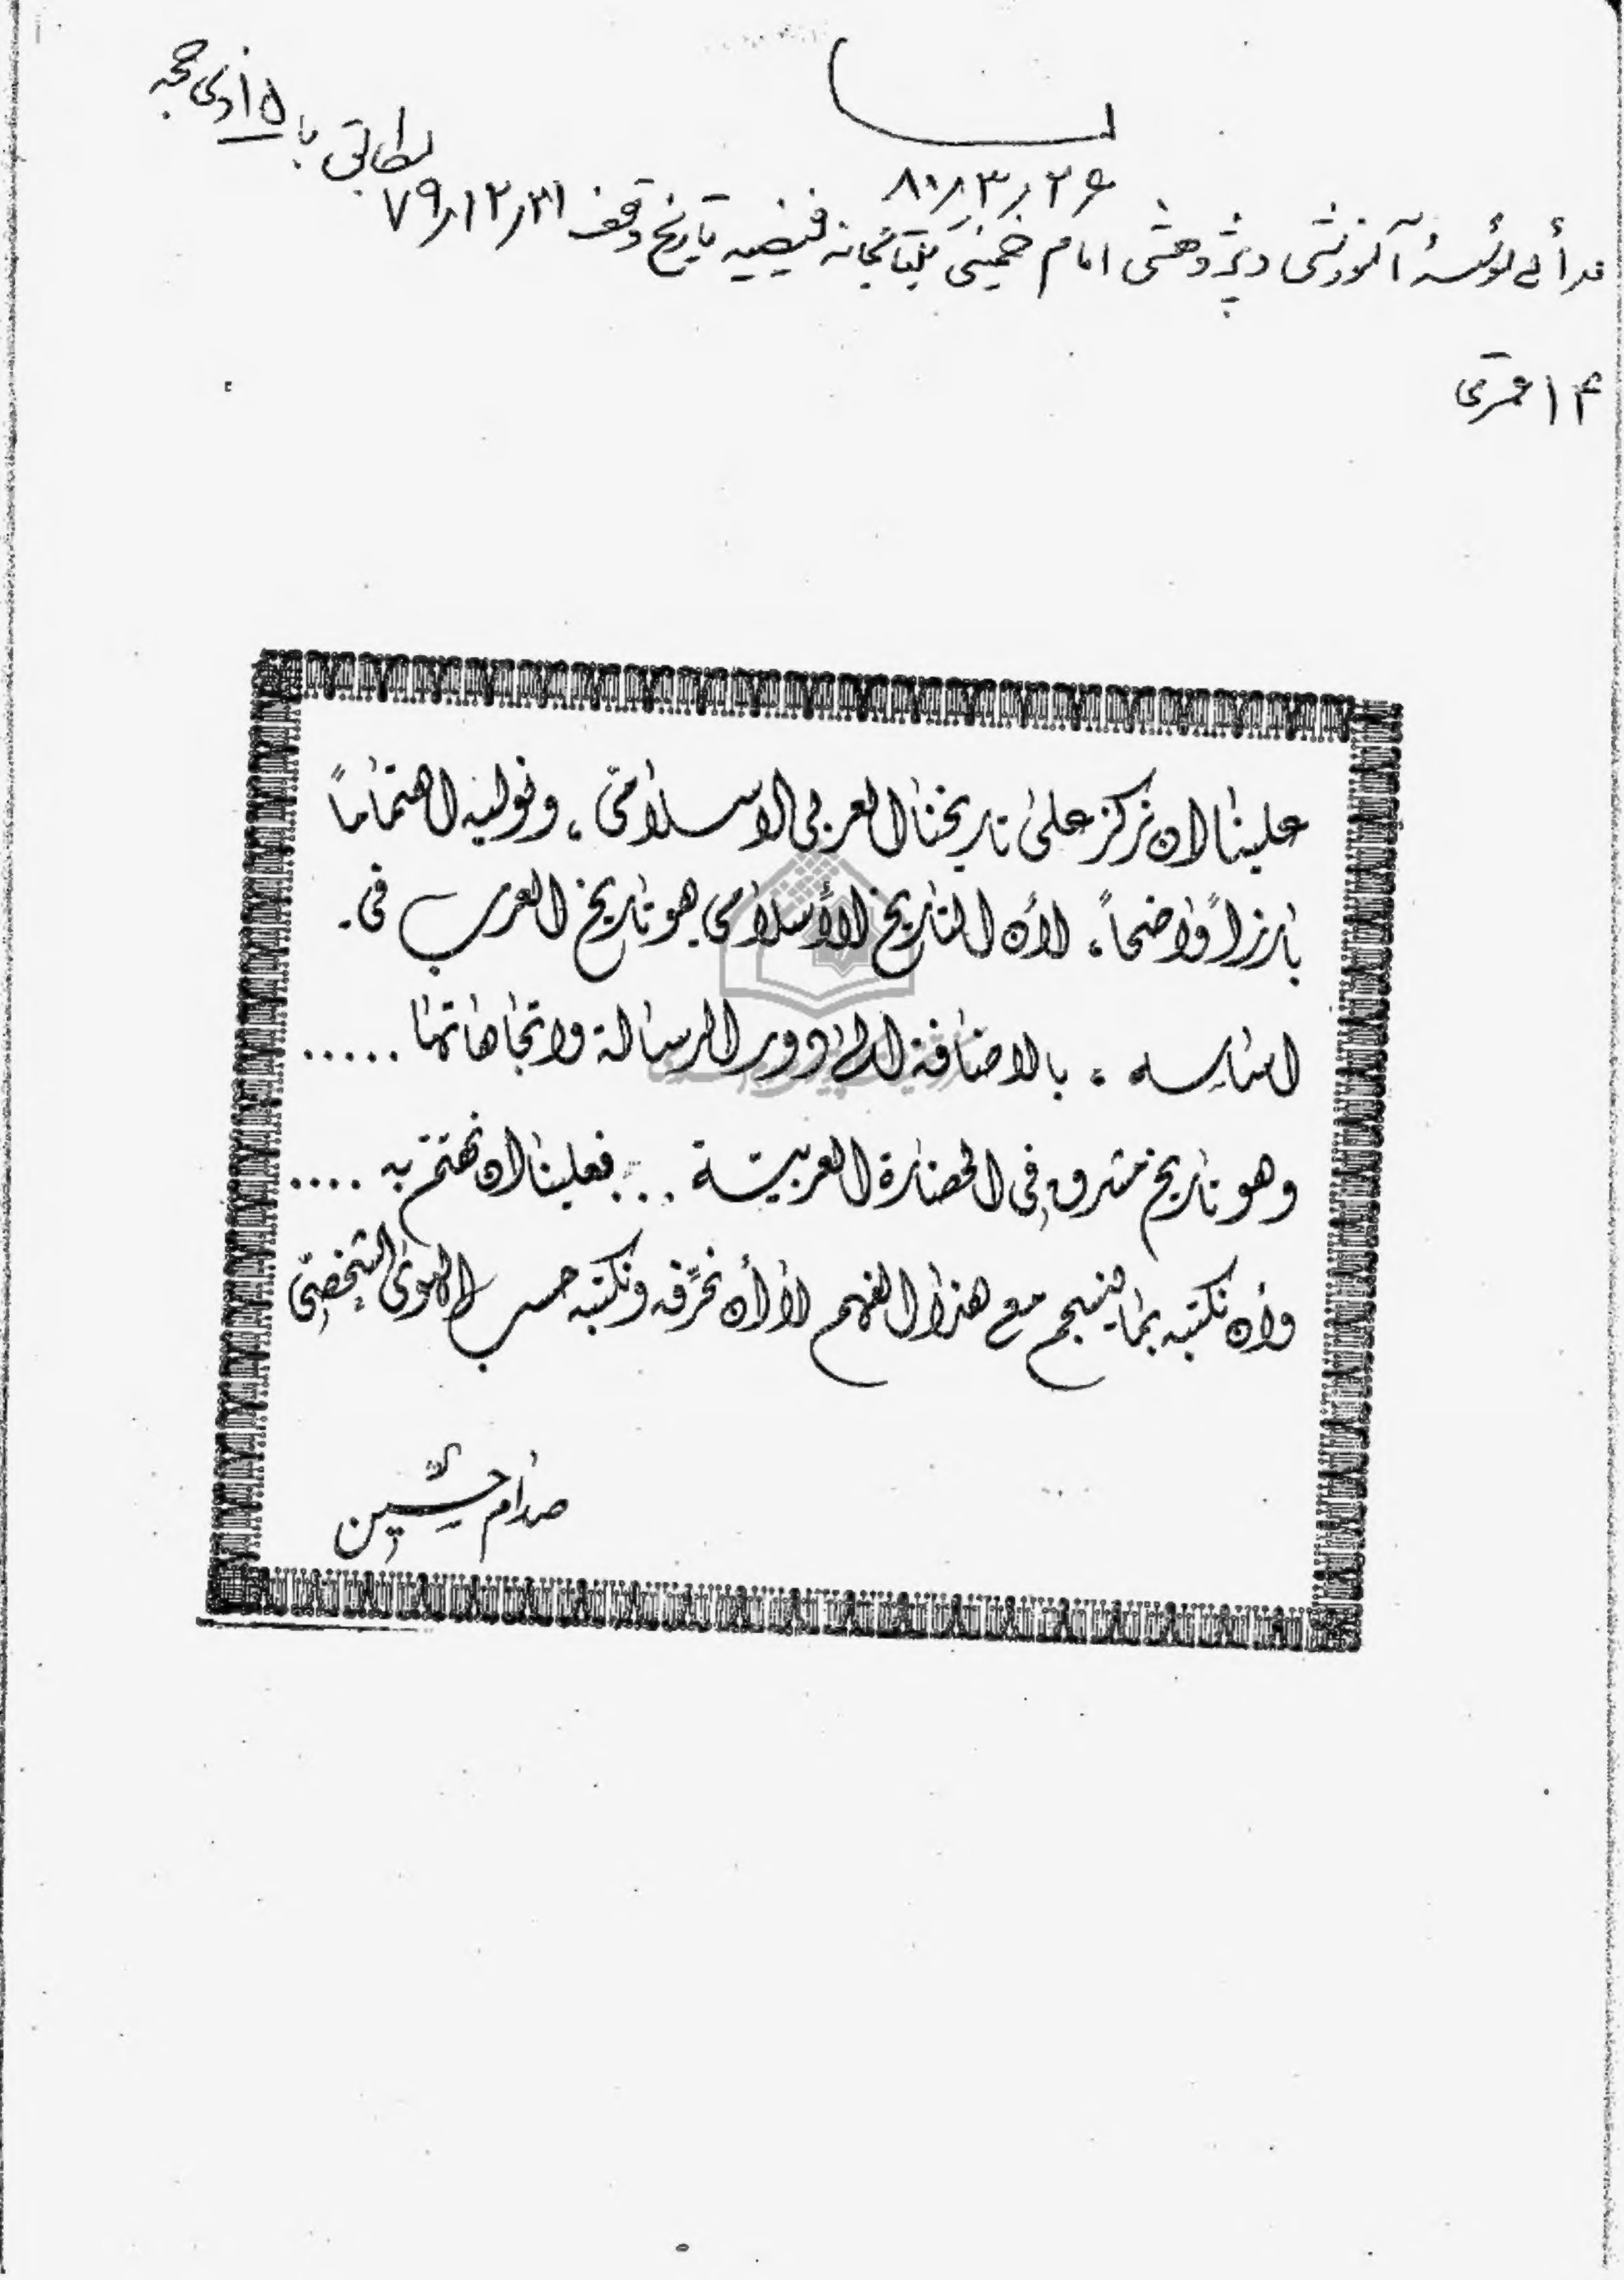 ۸۰/۳/۲۶
مؤسسهٔ آموزشی و پژوهشی امام خمینی بکتابخانه فیضیه تاریخ وقف ۷۹/۱۲/۲۱
مطابق با ۱۵ ذی حجه
۱۴ قمری
علينا ان نركز على تاريخنا العربي الاسلاميّ ، ونوليه اهتماماً
بارزاً واضحاً ، لأن التاريخ الأسلامي هو تاريخ العرب في .
اساسه ، بالاضافة الى دور الرسالة واتجاهاتها .....
وهو تاريخ مشرق في الحضارة العربيّة ... فعلينا ان نهتمّ به ....
وأن نكتبه بما ينسجم مع هذا الفهم لا أن نحرّفه ونكتبه حسب الهوى الشخصيّ
صدام حسين